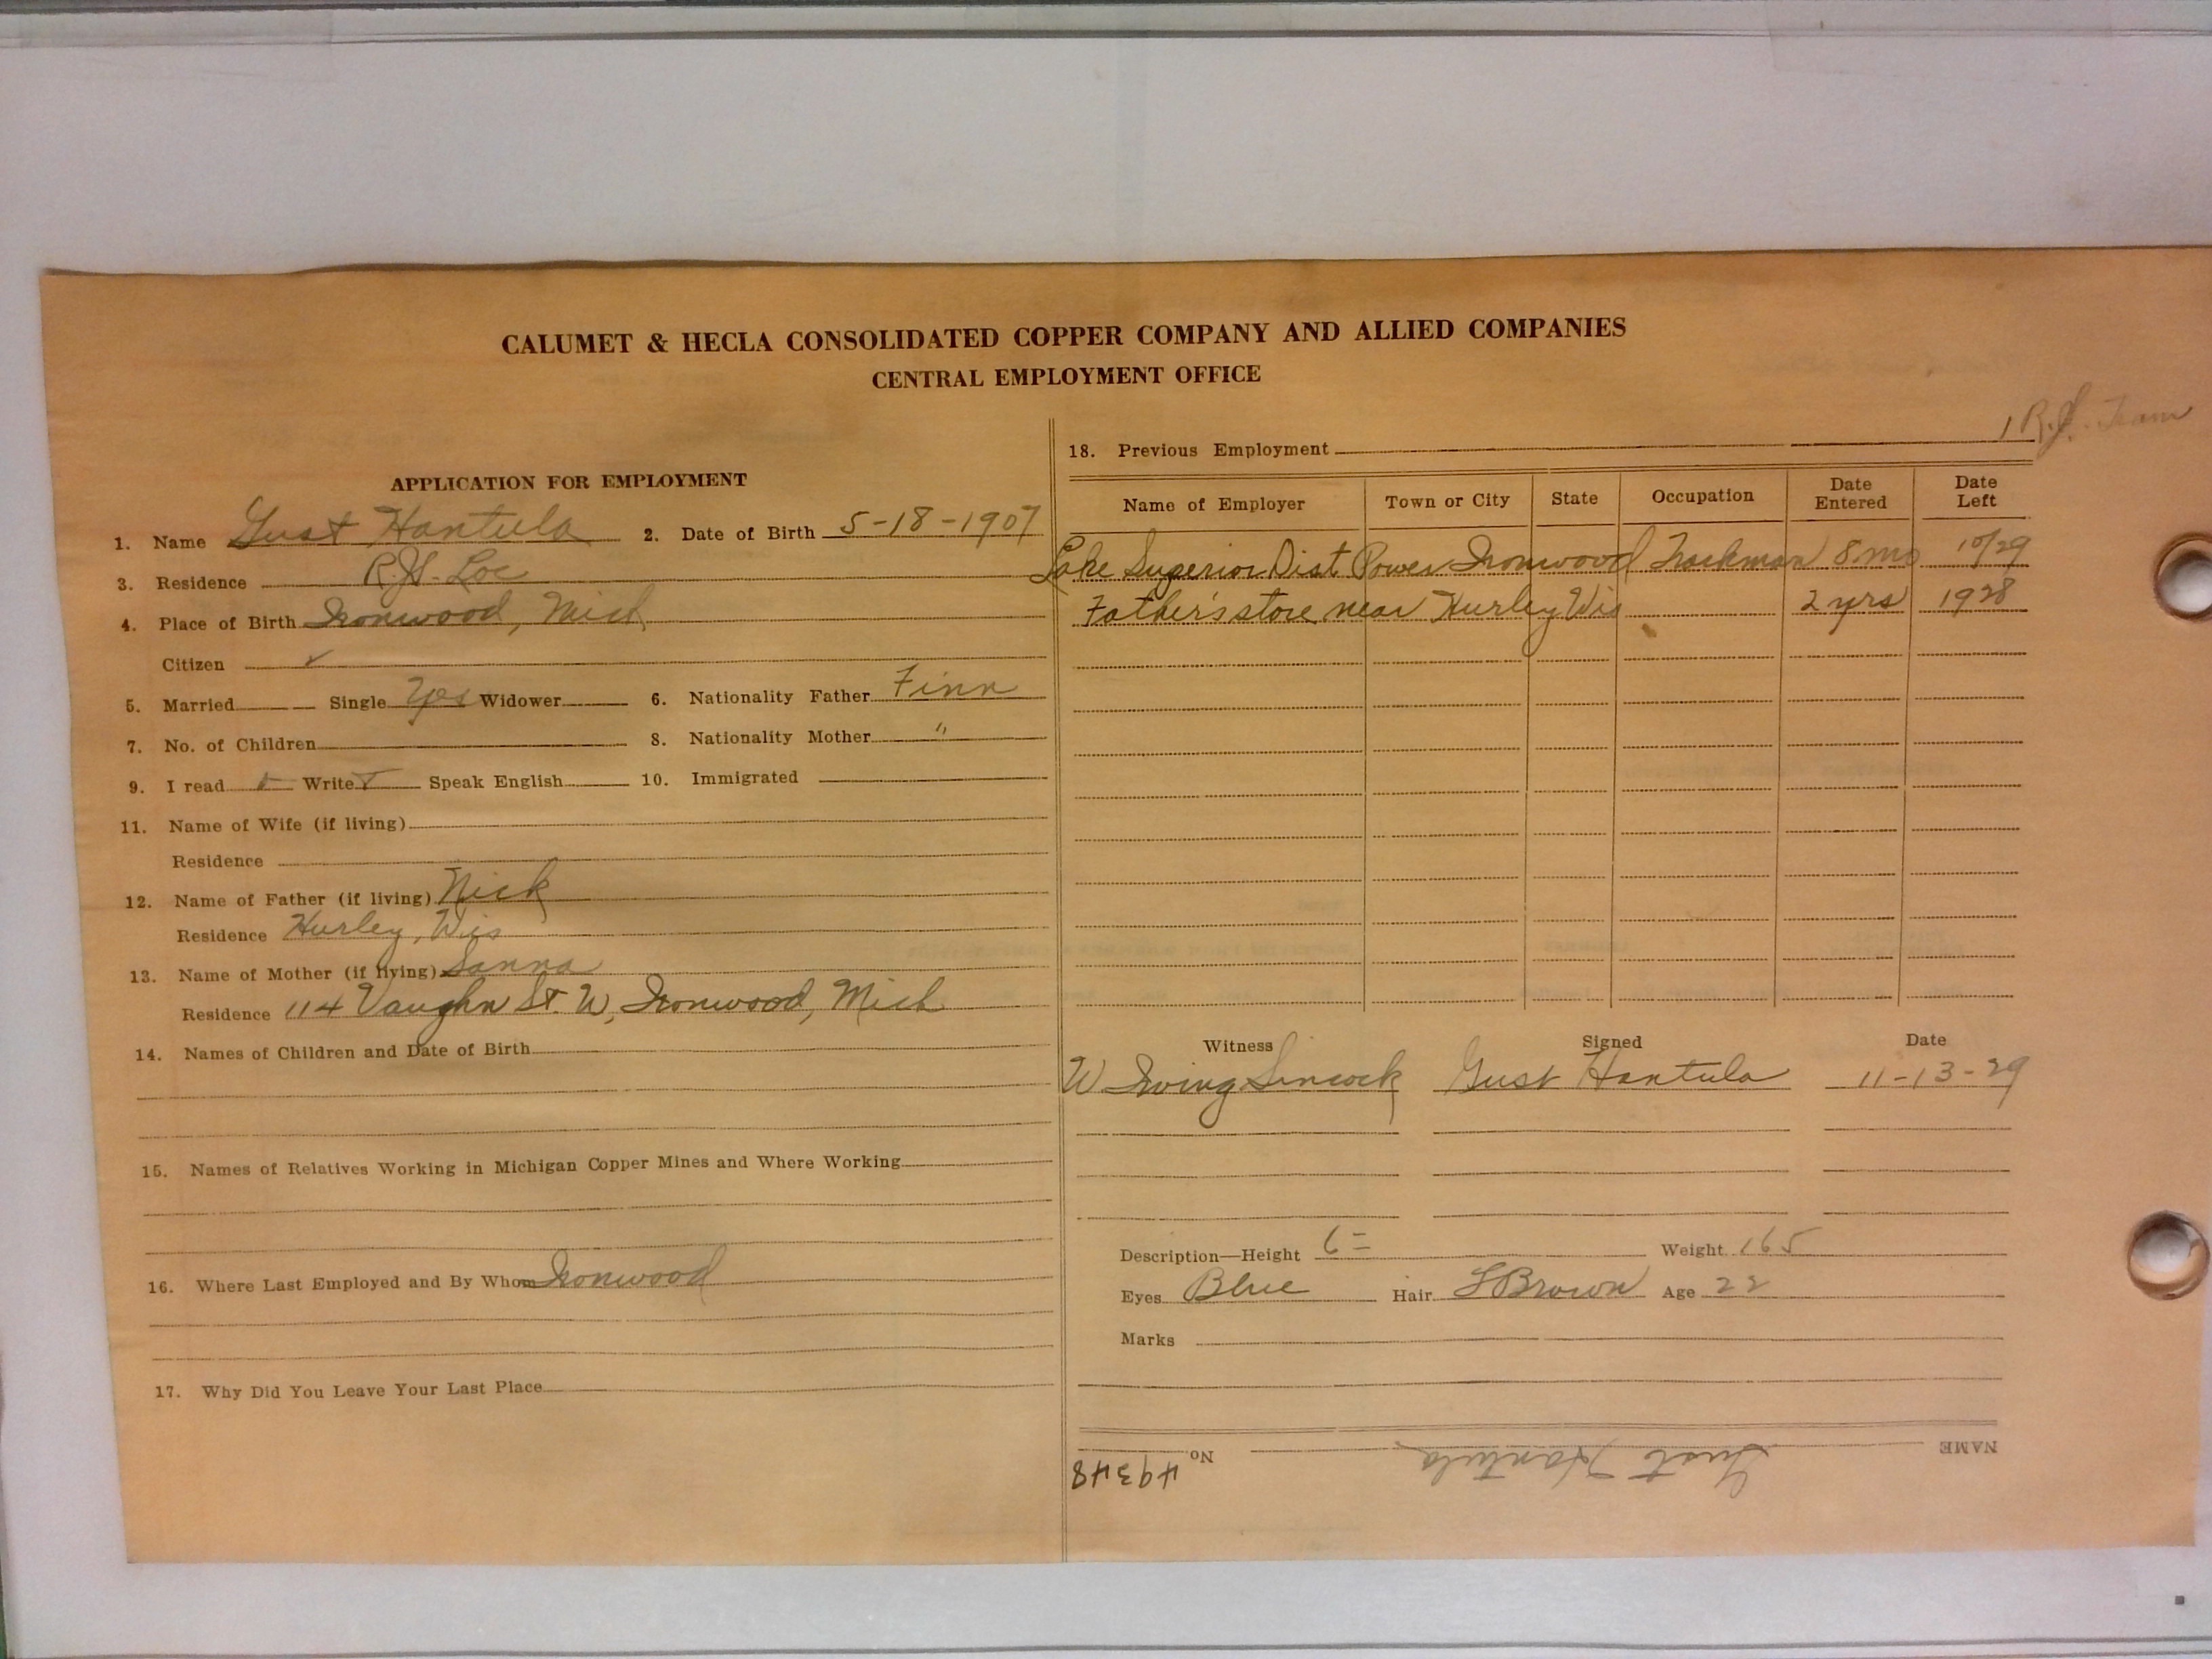 CALUMET & HECLA CONSOLIDATED COPPER COMPANY AND ALLIED COMPANIES
CENTRAL EMPLOYMENT OFFICE
APPLICATION FOR EMPLOYMENT
1. Name Gust Hantula 2. Date of Birth 5-18-1907
3. Residence Loc
4. Place of Birth Ironwood, Mich
Citizen ✓
5. Married Single Yes Widower 6. Nationality Father Finn
7. No. of Children 8. Nationality Mother "
9. I read Write Speak English 10. Immigrated
11. Name of Wife (if living)
Residence
12. Name of Father (if living) Nick
Residence Hurley, Wis
13. Name of Mother (if living) Sanna
Residence 114 Vaughn St. W, Ironwood, Mich
14. Names of Children and Date of Birth
15. Names of Relatives Working in Michigan Copper Mines and Where Working
16. Where Last Employed and By Whom Ironwood
17. Why Did You Leave Your Last Place
18. Previous Employment
Name of Employer Town or City State Occupation Date Entered Date Left
Lake Superior Dist Power Ironwood Trackman 8 mo 10/29
Father's store near Hurley Wis 2 yrs 1928
Witness Signed Date
W Irving Sincock Gust Hantula 11-13-29
Description—Height 6= Weight 165
Eyes Blue Hair L Brown Age 22
Marks
NAME Gust Hantula No. 49348